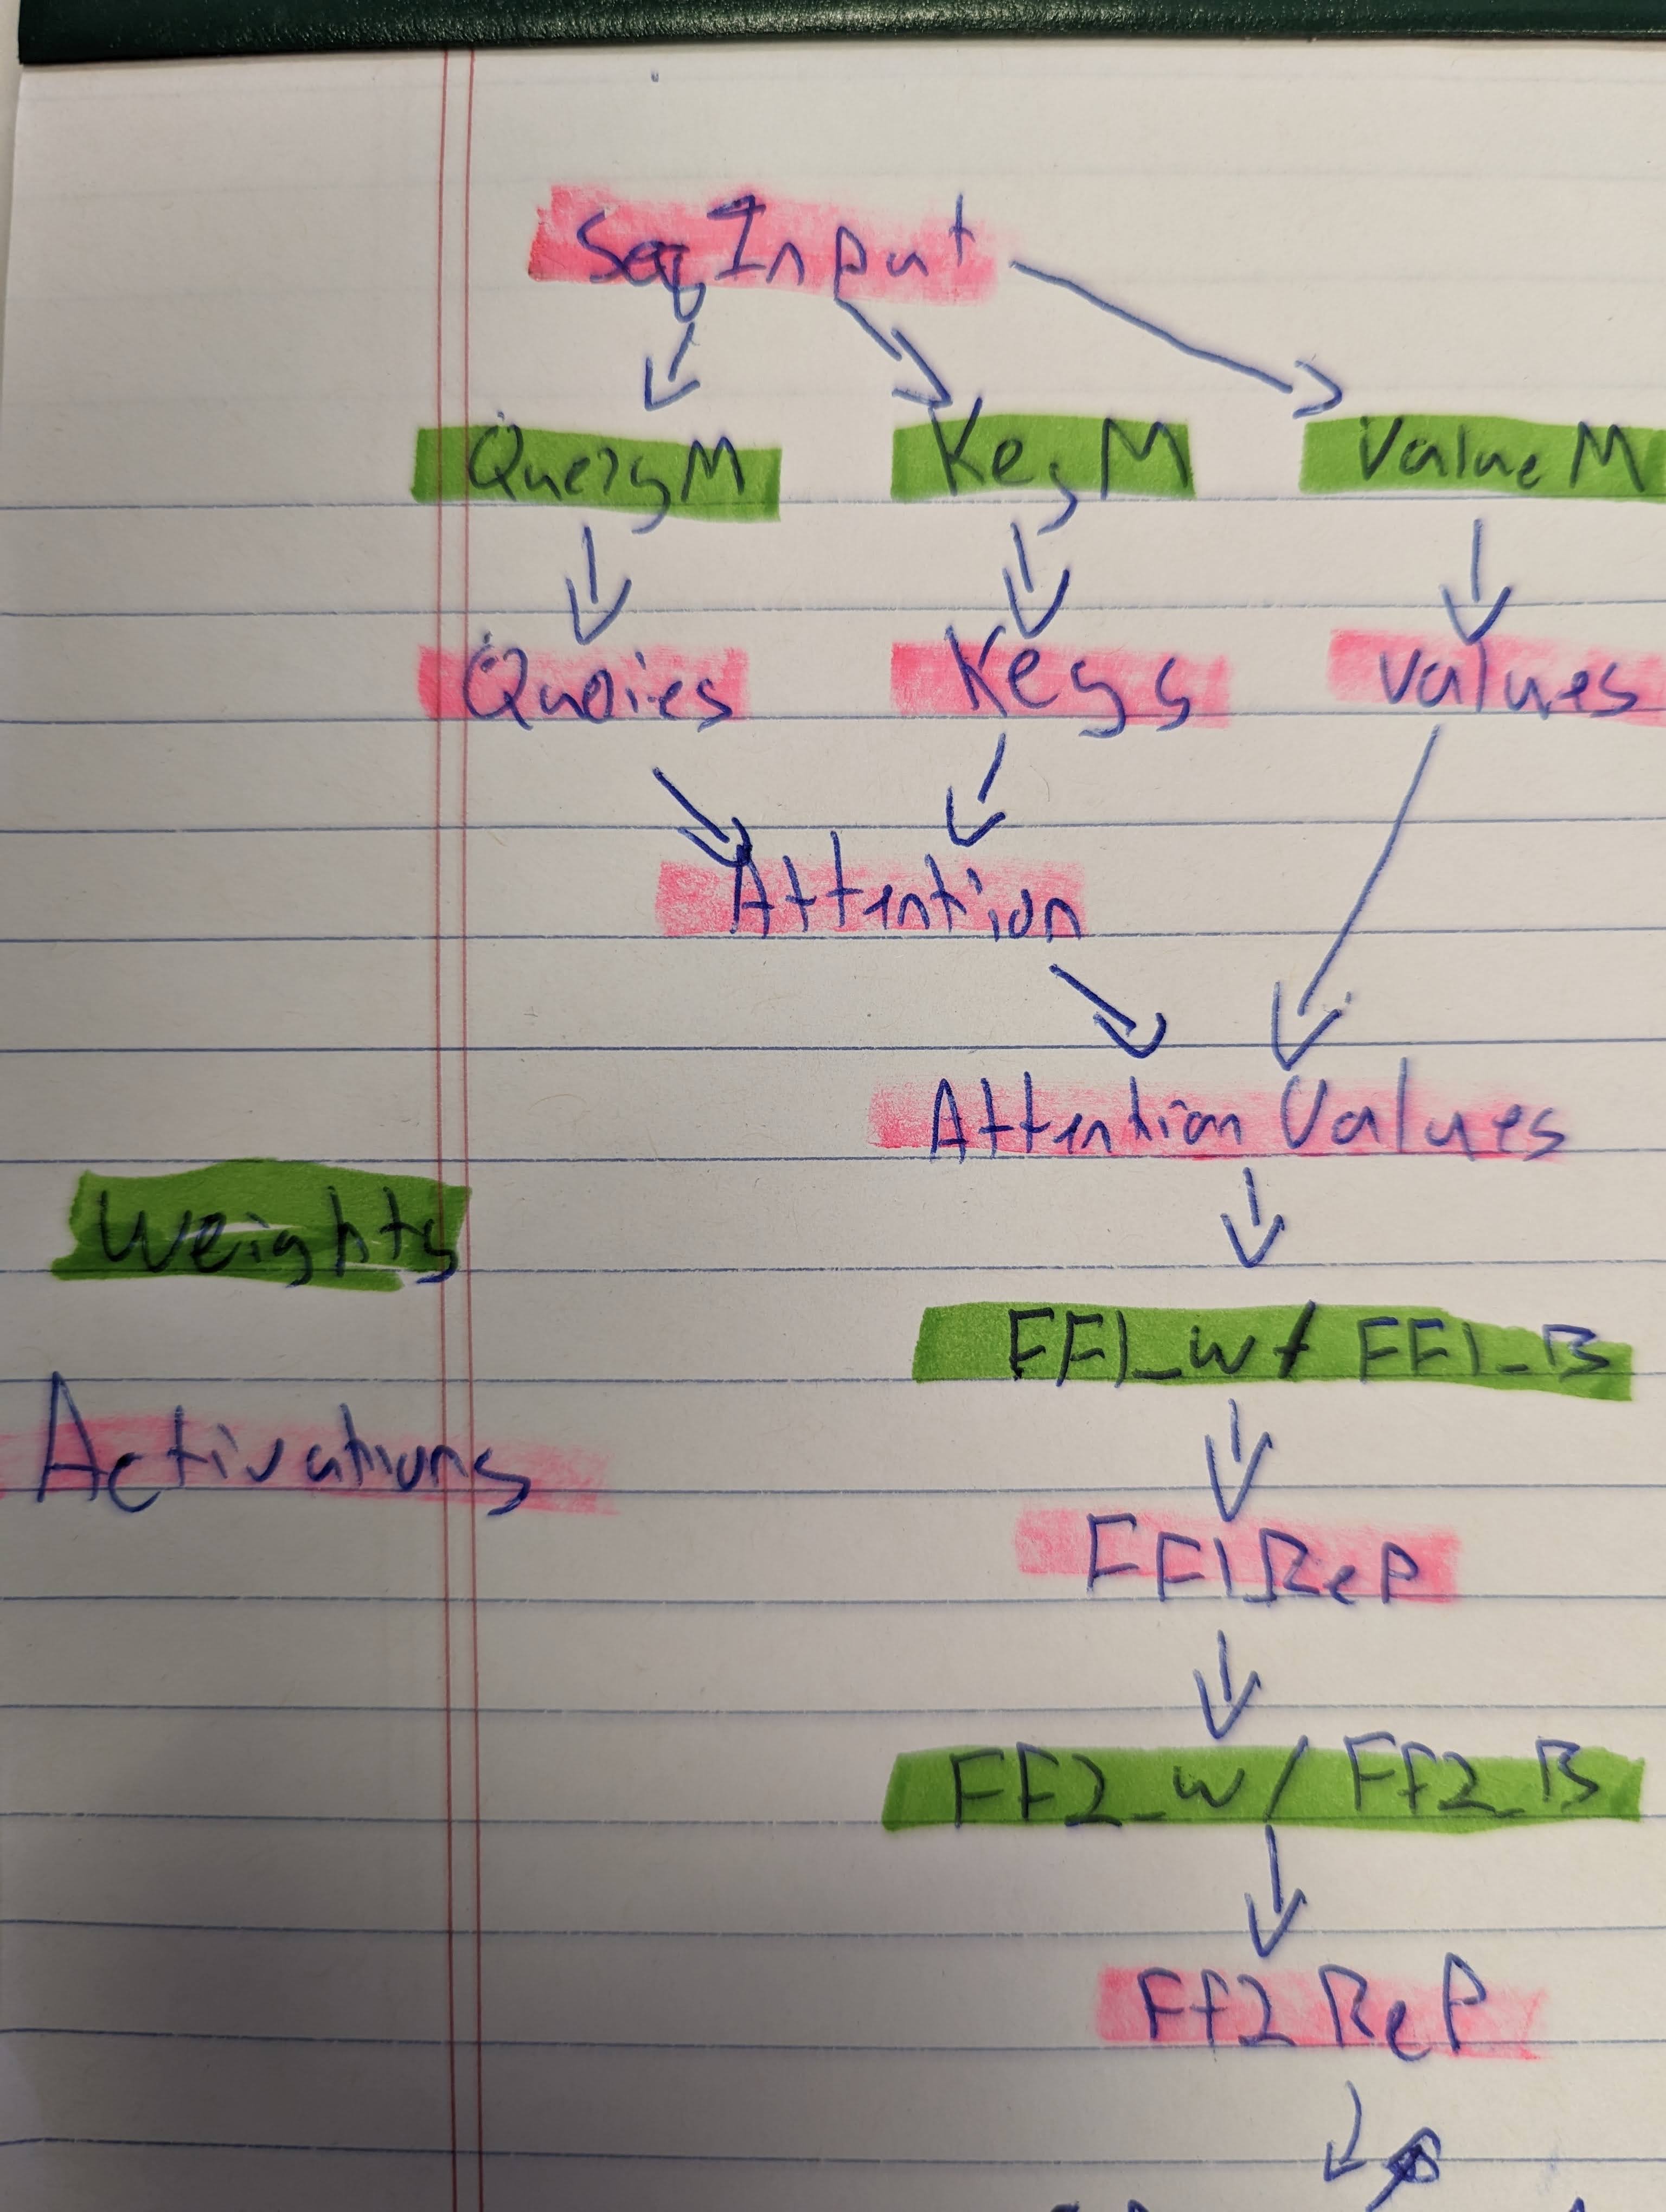 Seq Input
QueryM KeyM ValueM
Queries Keys Values
Attention
Attention Values
Weights
FF1_W / FF1_B
Activations
FF1 Rep
FF2_W / FF2_B
FF2 Rep